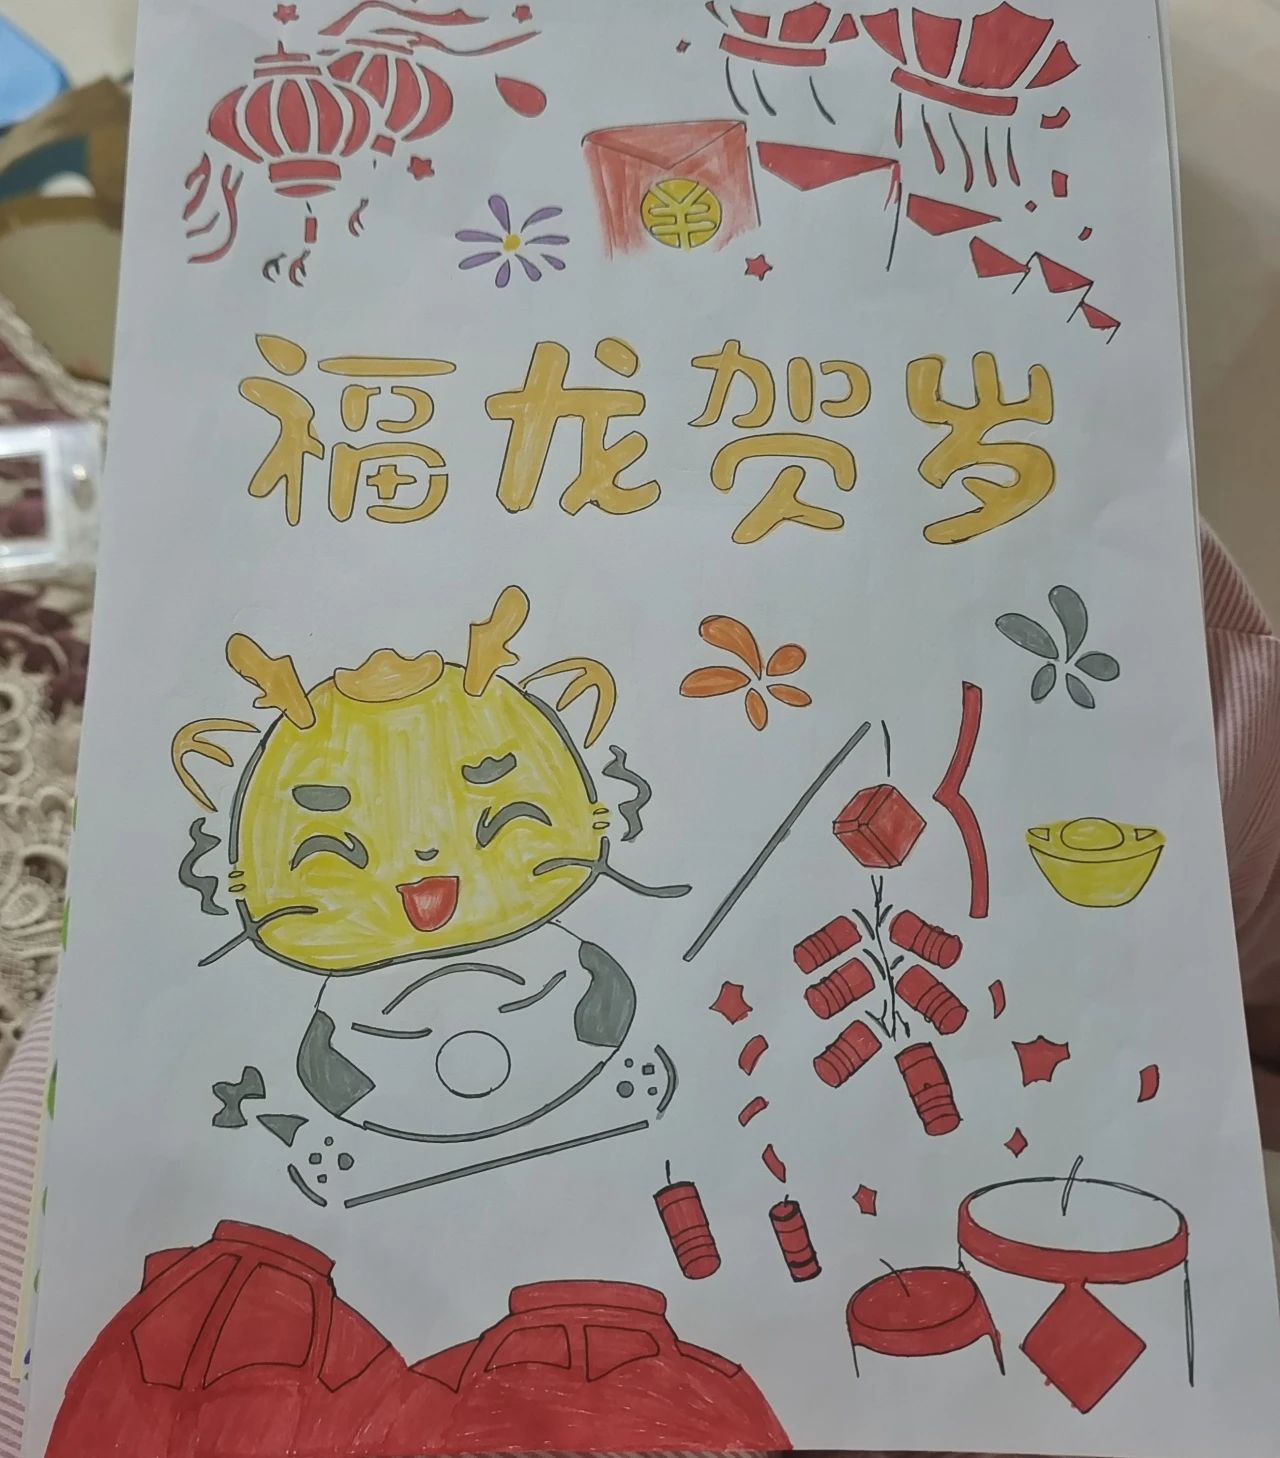 福龙贺岁